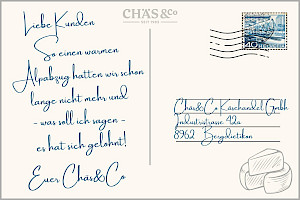 CHÄS & Co
Liebe Kunden
So einen warmen
Alpabzug hatten wir schon
lange nicht mehr und
- was soll ich sagen -
es hat sich gelohnt!
Euer Chäs&Co
40
Chäs&Co Käsehandel GmbH
Industriestrasse 42a
8962 Bergdietikon